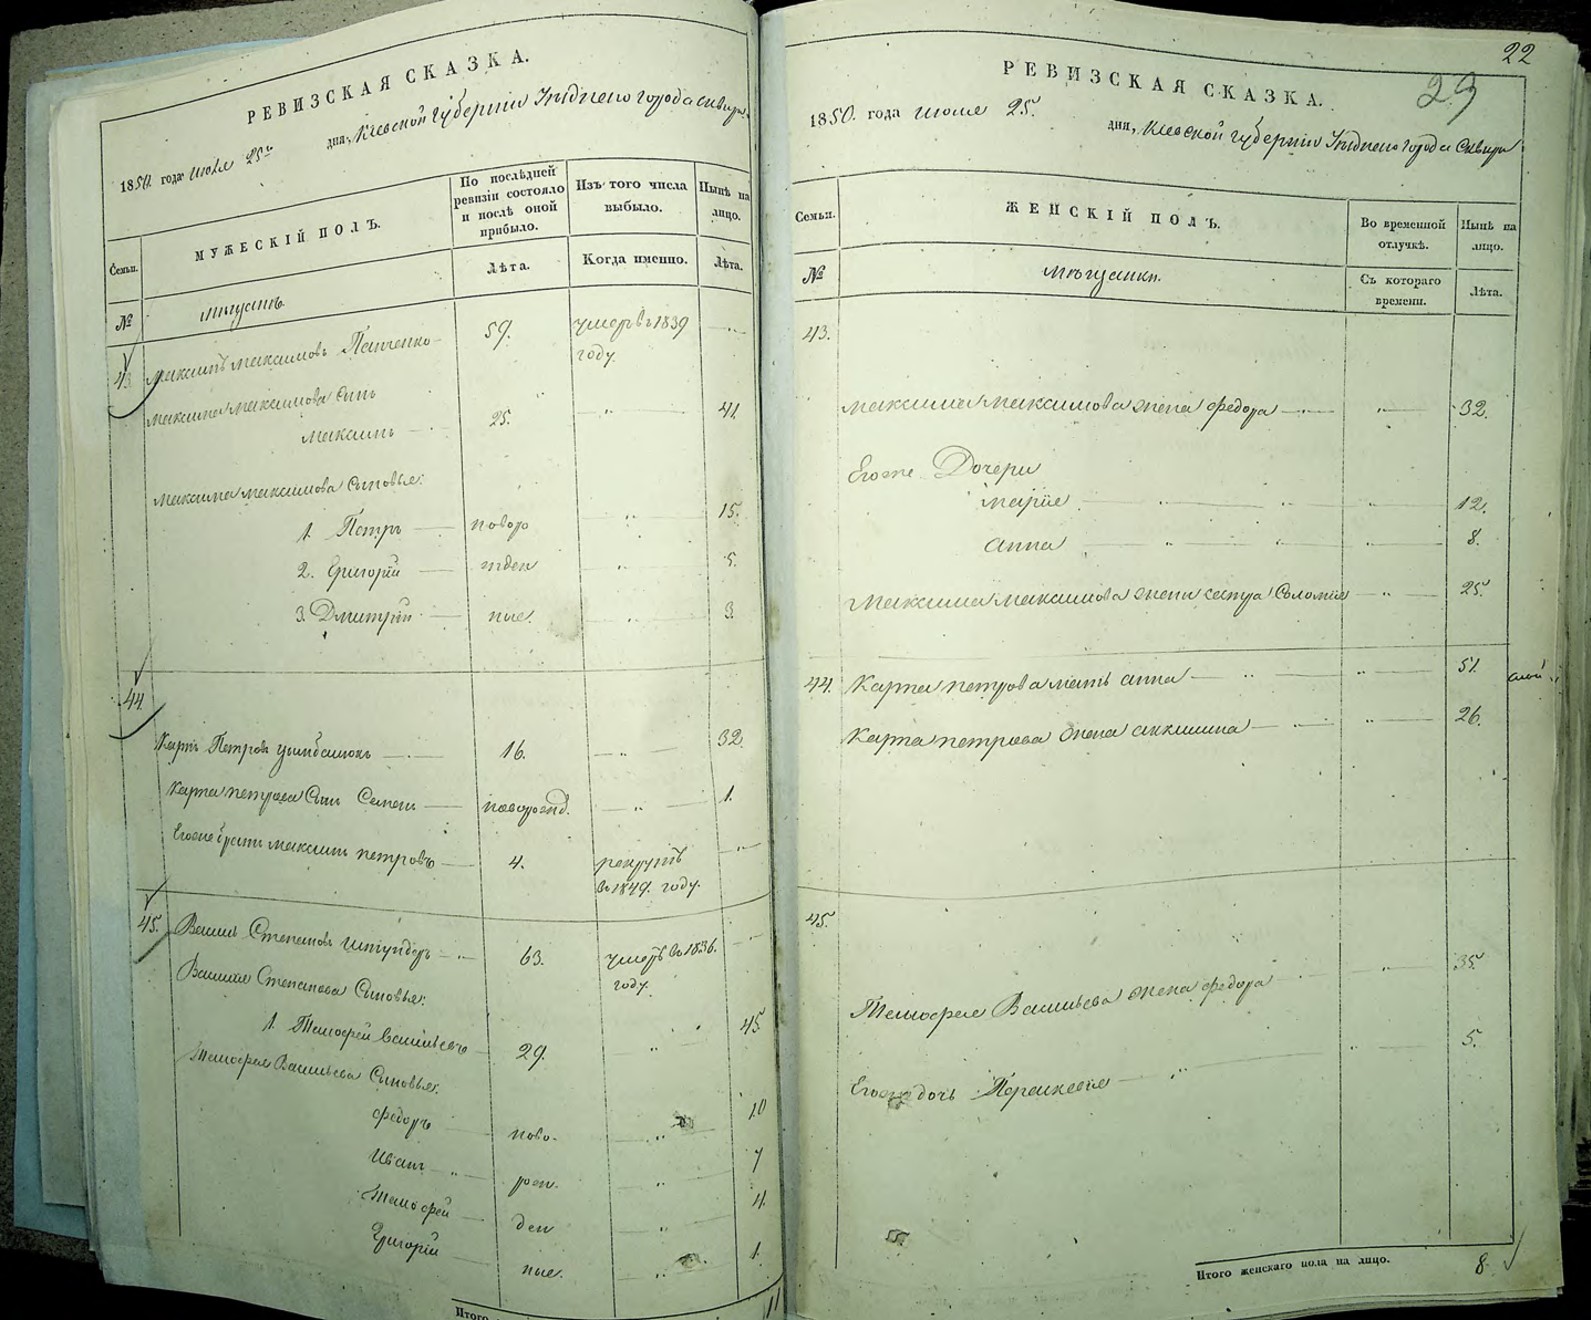 РЕВИЗСКАЯ СКАЗКА.
1850. года июля 25го дня, Киевской Губернии Уѣзднаго города Сквиры
Семьи.
МУЖЕСКІЙ ПОЛЪ.
По послѣдней ревизіи состояло и послѣ оной прибыло.
Изъ того числа выбыло.
Нынѣ на лицо.
Лѣта.
Когда именно.
Лѣта.
№
мѣщанъ
43. Максимъ Максимовъ Панченко 59. умеръ в 1839 году.
Максима Максимова Сынъ
Максимъ 25. " 41.
Максима Максимова Сыновья:
1. Петръ новоро " 15.
2. Григорій жден " 5.
3. Дмитрій ные. " 3.
44.
Карпъ Петровъ 16. " 32.
Карпа Петрова Сынъ Семенъ новорожд. " 1.
Егоже братъ Максимъ Петровъ 4. рекрутъ в 1849. году. "
45. Василь Степановъ 63. умеръ в 1836. году.
Василя Степанова Сыновья:
1. Тимофей Васильевъ 29. " 45
Тимофея Васильева Сыновья:
Федоръ ново- " 10
Иванъ рож- " 7
Тимофей ден " 4.
Григорій ные. " 1.
Итого
11
22
23
РЕВИЗСКАЯ СКАЗКА.
1850. года июля 25. дня, Киевской Губернии Уѣзднаго города Сквиры
Семьи.
ЖЕНСКІЙ ПОЛЪ.
Во временной отлучкѣ.
Нынѣ на лицо.
№
мѣщанки.
Съ котораго времени.
Лѣта.
43.
Максима Максимова жена Федора " 32.
Егоже Дочери
Марія " 12.
Анна " 8.
Максима Максимова жены сестра Соломія " 25.
44. Карпа Петрова мать Анна " 51.
Карпа Петрова жена " 26.
45.
Тимофея Васильева жена Федора " 35.
Егоже дочь Параскевія " 5.
Итого женскаго пола на лицо. 8